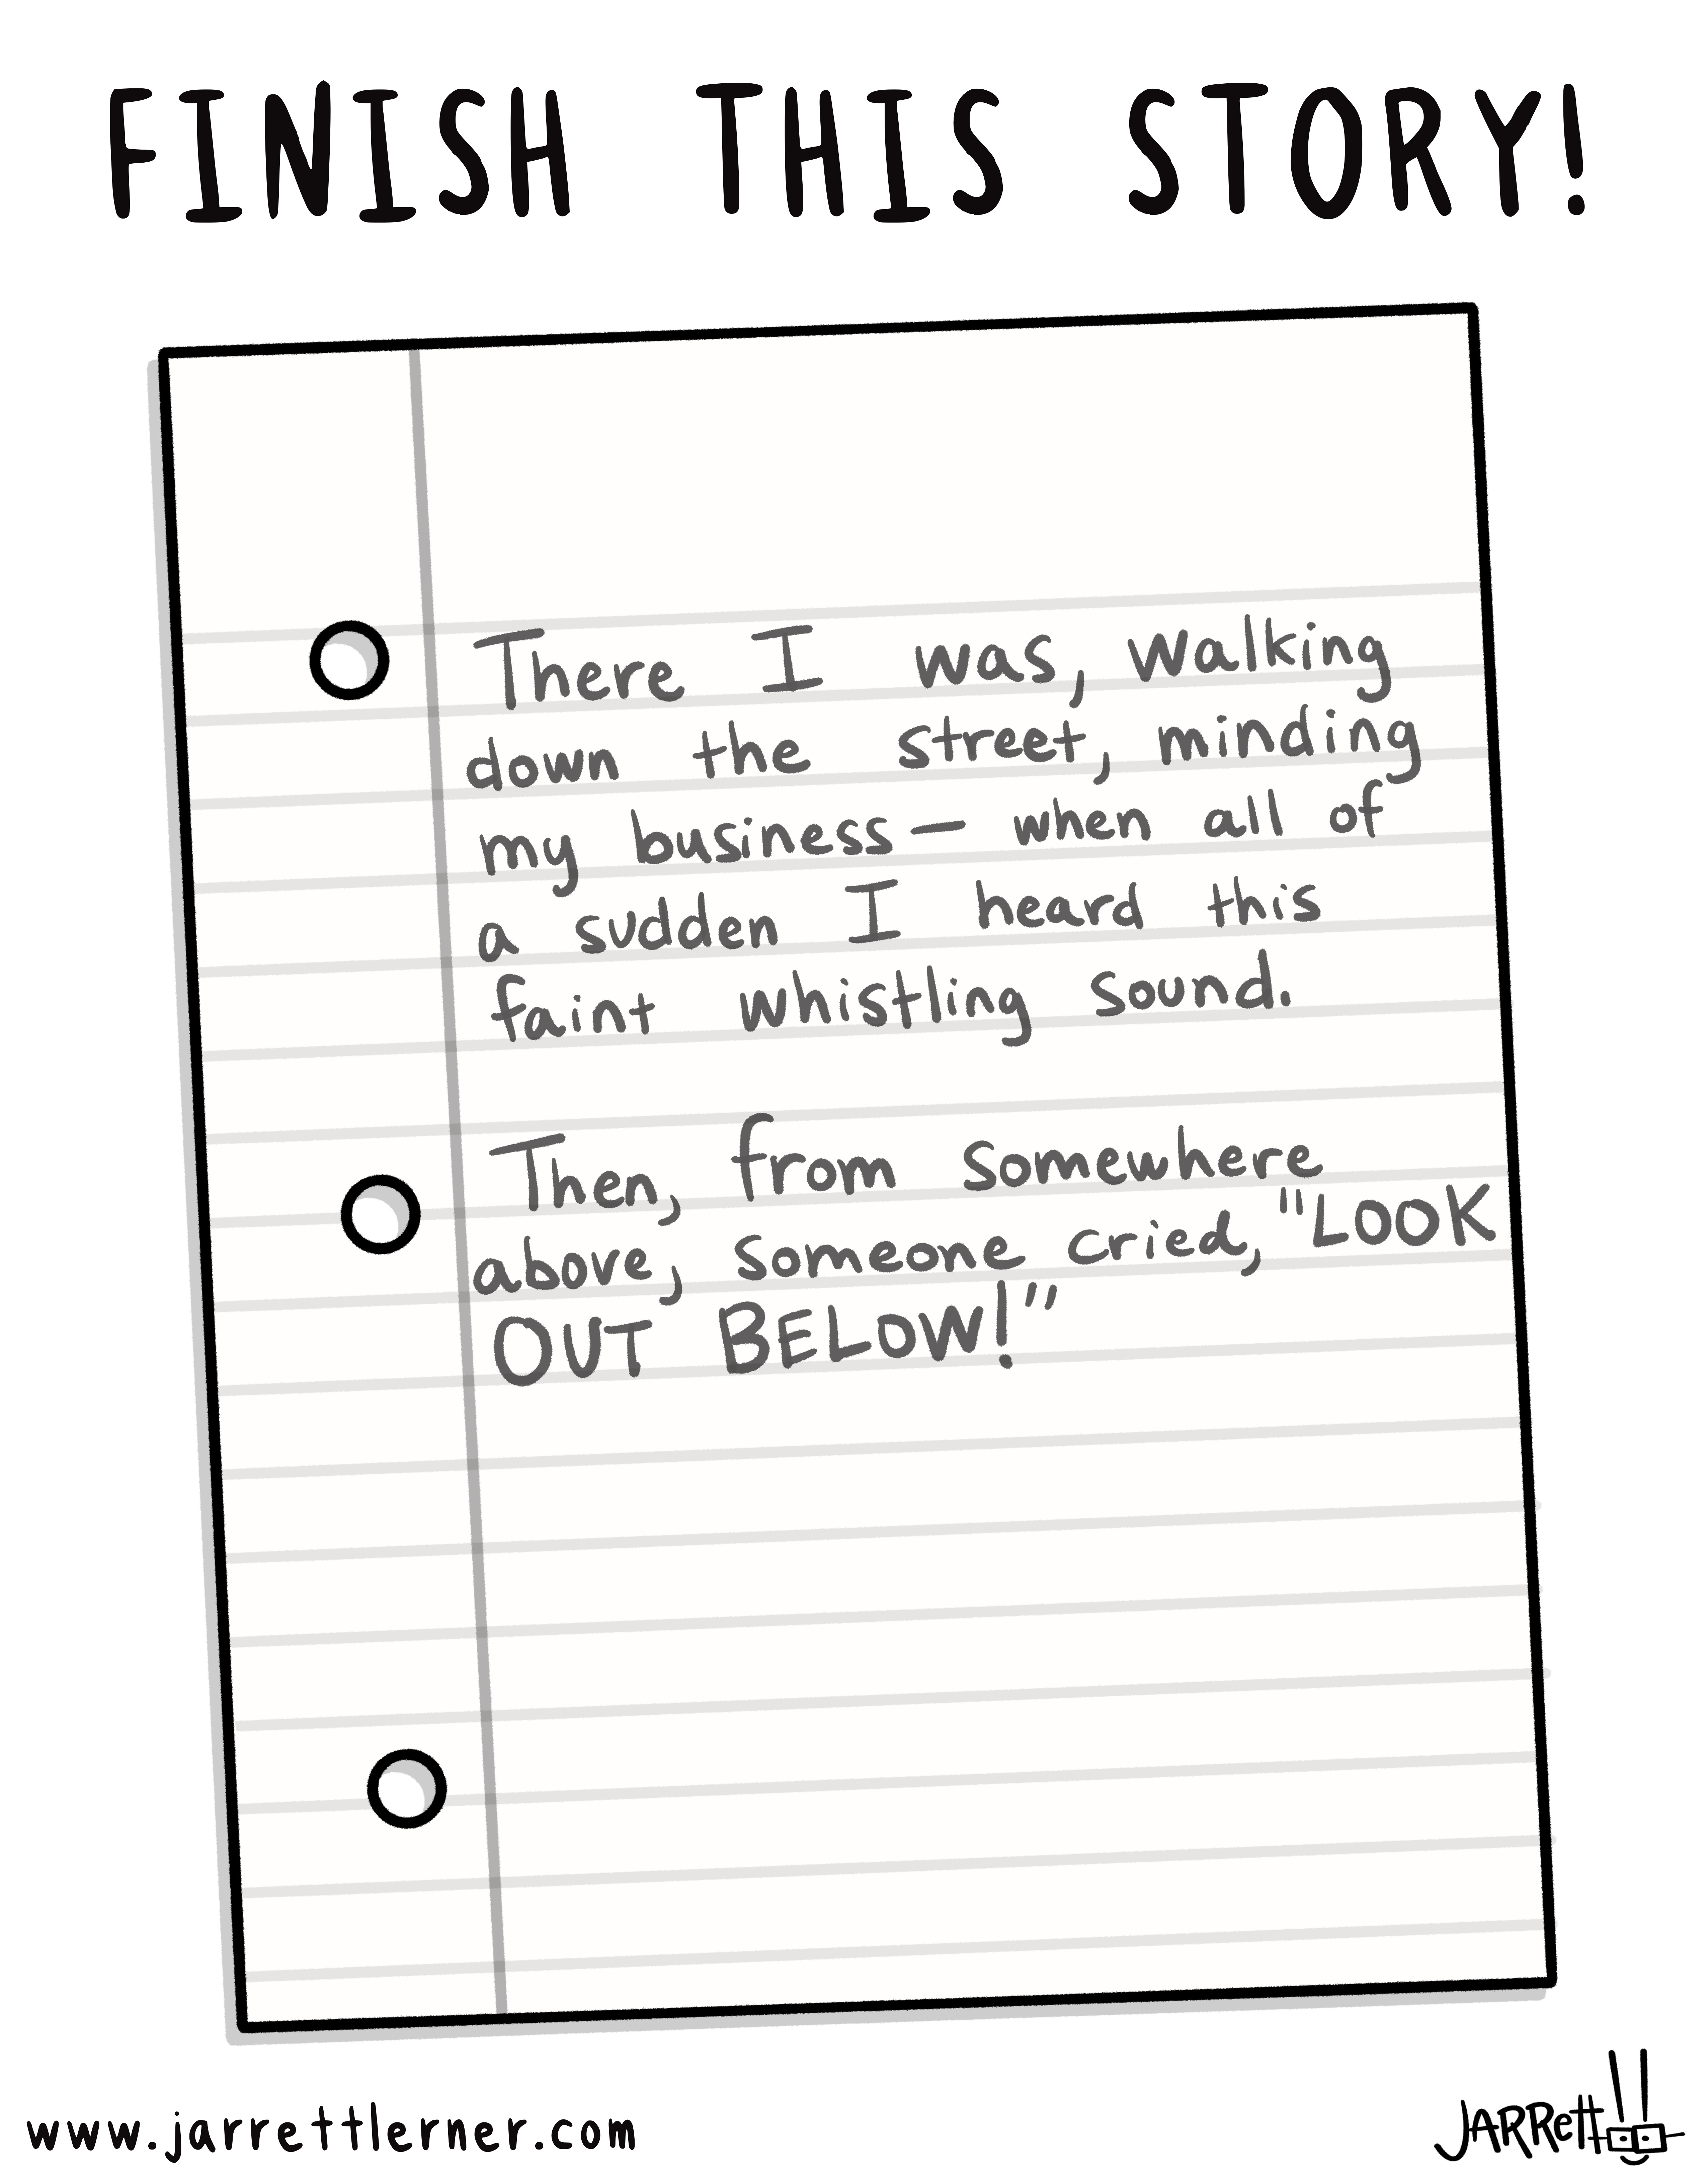 FINISH THIS STORY!
There I was, walking
down the street, minding
my business — when all of
a sudden I heard this
faint whistling sound.
Then, from somewhere
above, someone cried, "LOOK
OUT BELOW!"
www.jarrettlerner.com
JARRett